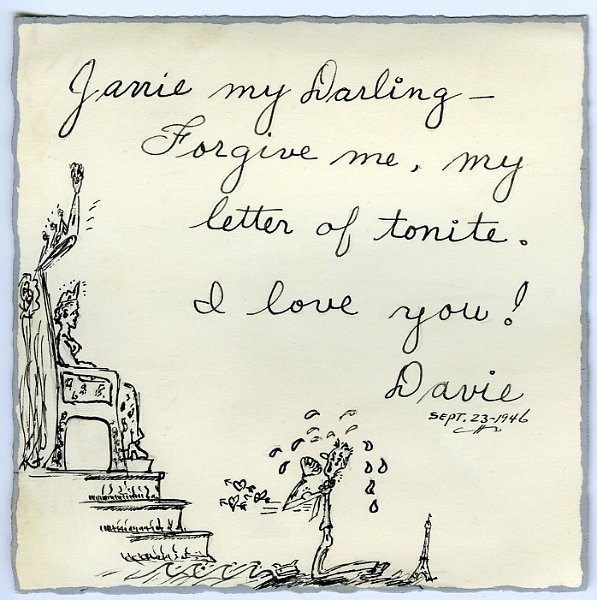 Janie my Darling –
Forgive me, my
letter of tonite.
I love you!
Davie
SEPT. 23-1946